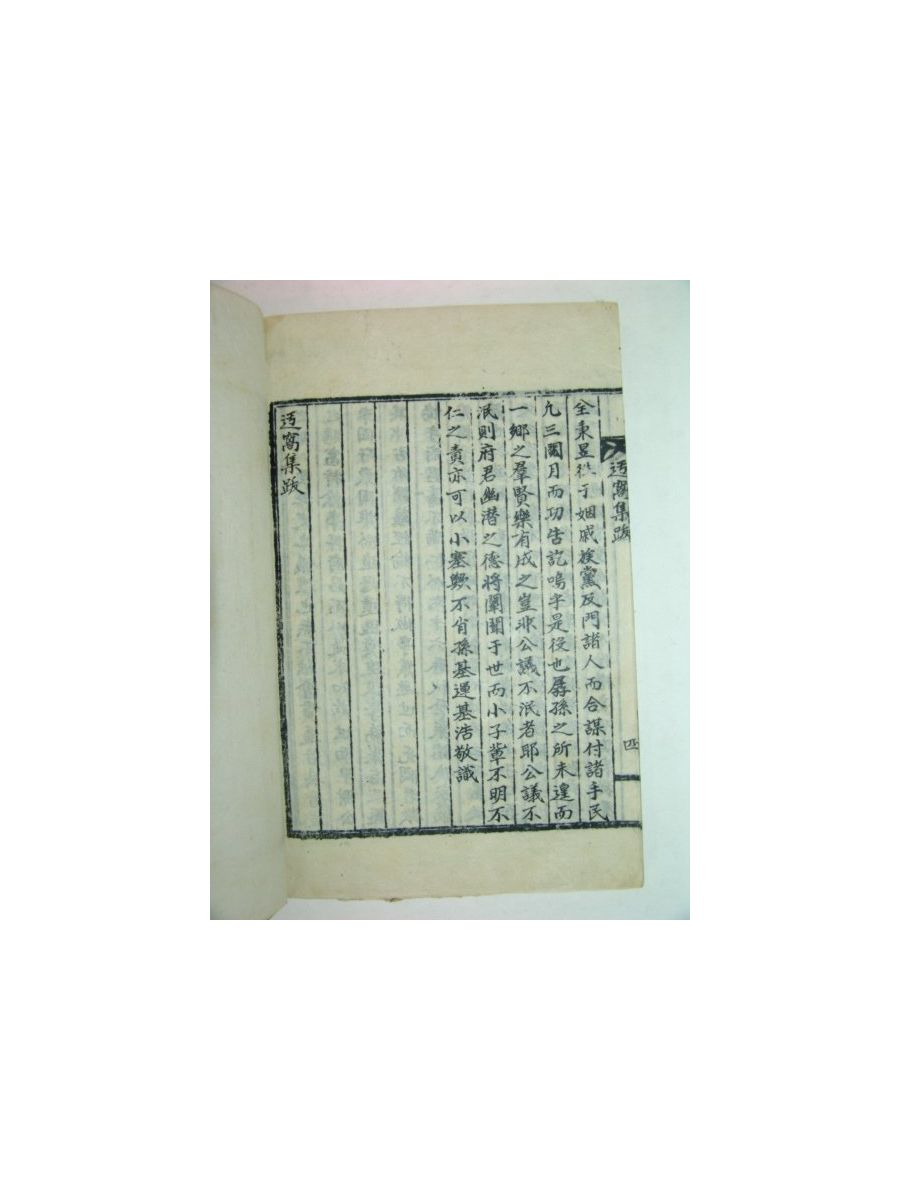 迃窩集跋
四
全秉昱從于姻戚族黨及門諸人而合謀付諸手民
凡三閱月而功告訖嗚乎是役也孱孫之所未遑而
一鄉之羣賢樂有成之豈非公議不泯者耶公議不
泯則府君幽潛之德將闡開于世而小子輩不明不
仁之責亦可以小塞歟不肖孫基運基浩敬識
迃窩集跋